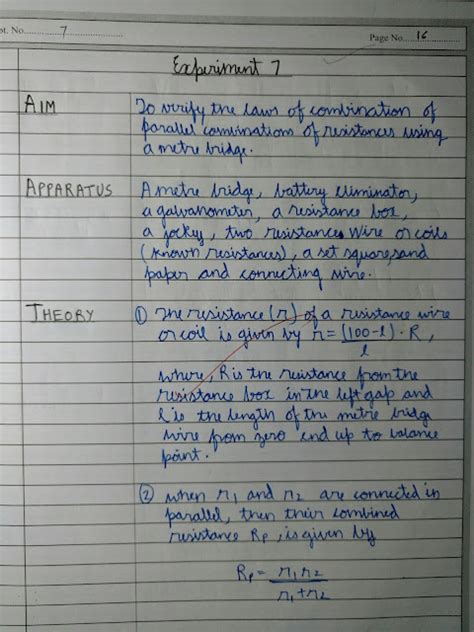 pt. No. 7
Page No. 16
Experiment 7
AIM
To verify the laws of combination of
parallel combinations of resistances using
a metre bridge.
APPARATUS
A metre bridge, battery eliminator,
a galvanometer, a resistance box,
a jockey, two resistances wire or coils
(known resistances), a set square, sand
paper and connecting wire.
THEORY
① The resistance (r) of a resistance wire
or coil is given by r = (100-l)/l . R,
where, R is the resistance from the
resistance box in the left gap and
l is the length of the metre bridge
wire from zero end up to balance
point.
② when r1 and r2 are connected in
parallel, then their combined
resistance Rp, is given by
Rp = r1 r2
r1 + r2